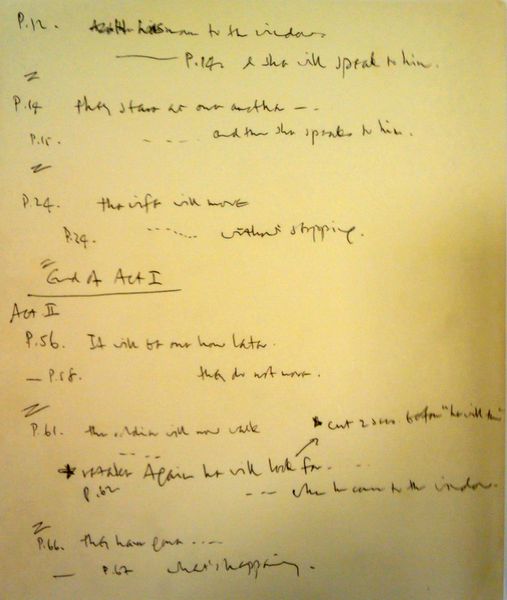 P.12. to the window
P.14. & she will speak to him.
P.14 they stare at one another --
P.15. ---- and then she speaks to him.
P.24. the wife will move
P.24. ...... without stopping.
End of Act I
Act II
P.56. It will be one hour later.
— P.58. they do not move.
P.61. the soldier will now walk
cut 2 before "he will
Again he will look for. ...
P.62 --- when he comes to the window.
P.66. they have gone ....
— P.67 what's happening.